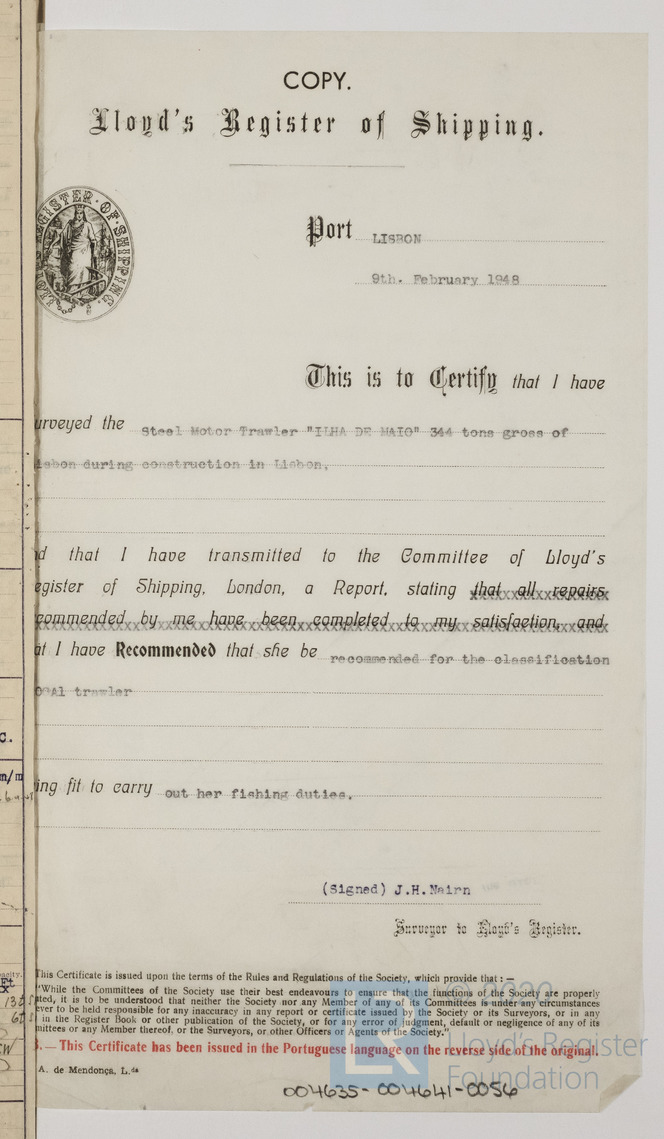 COPY.
Lloyd's Register of Shipping.
LLOYD'S REGISTER·OF·SHIPPING
Port LISBON
9th. February 1948
This is to Certify that I have
urveyed the Steel Motor Trawler "ILHA DE MAIO" 344 tons gross of
isbon during construction in Lisbon.
d that I have transmitted to the Committee of Lloyd's
egister of Shipping, London, a Report, stating that all repairs
commended by me have been completed to my satisfaction, and
at I have Recommended that she be recommended for the classification
OAl trawler
ing fit to carry out her fishing duties.
(Signed) J.H.Nairn
Surveyor to Lloyd's Register.
This Certificate is issued upon the terms of the Rules and Regulations of the Society, which provide that : —
"While the Committees of the Society use their best endeavours to ensure that the functions of the Society are properly
uted, it is to be understood that neither the Society nor any Member of any of its Committees is under any circumstances
ever to be held responsible for any inaccuracy in any report or certificate issued by the Society or its Surveyors, or in any
in the Register Book or other publication of the Society, or for any error of judgment, default or negligence of any of its
mittees or any Member thereof, or the Surveyors, or other Officers or Agents of the Society."
. — This Certificate has been issued in the Portuguese language on the reverse side of the original.
A. de Mendonça, L.da
004635-004641-0056
LR
© 2020
Lloyd's Register
Foundation
C.
m/m
pacity.